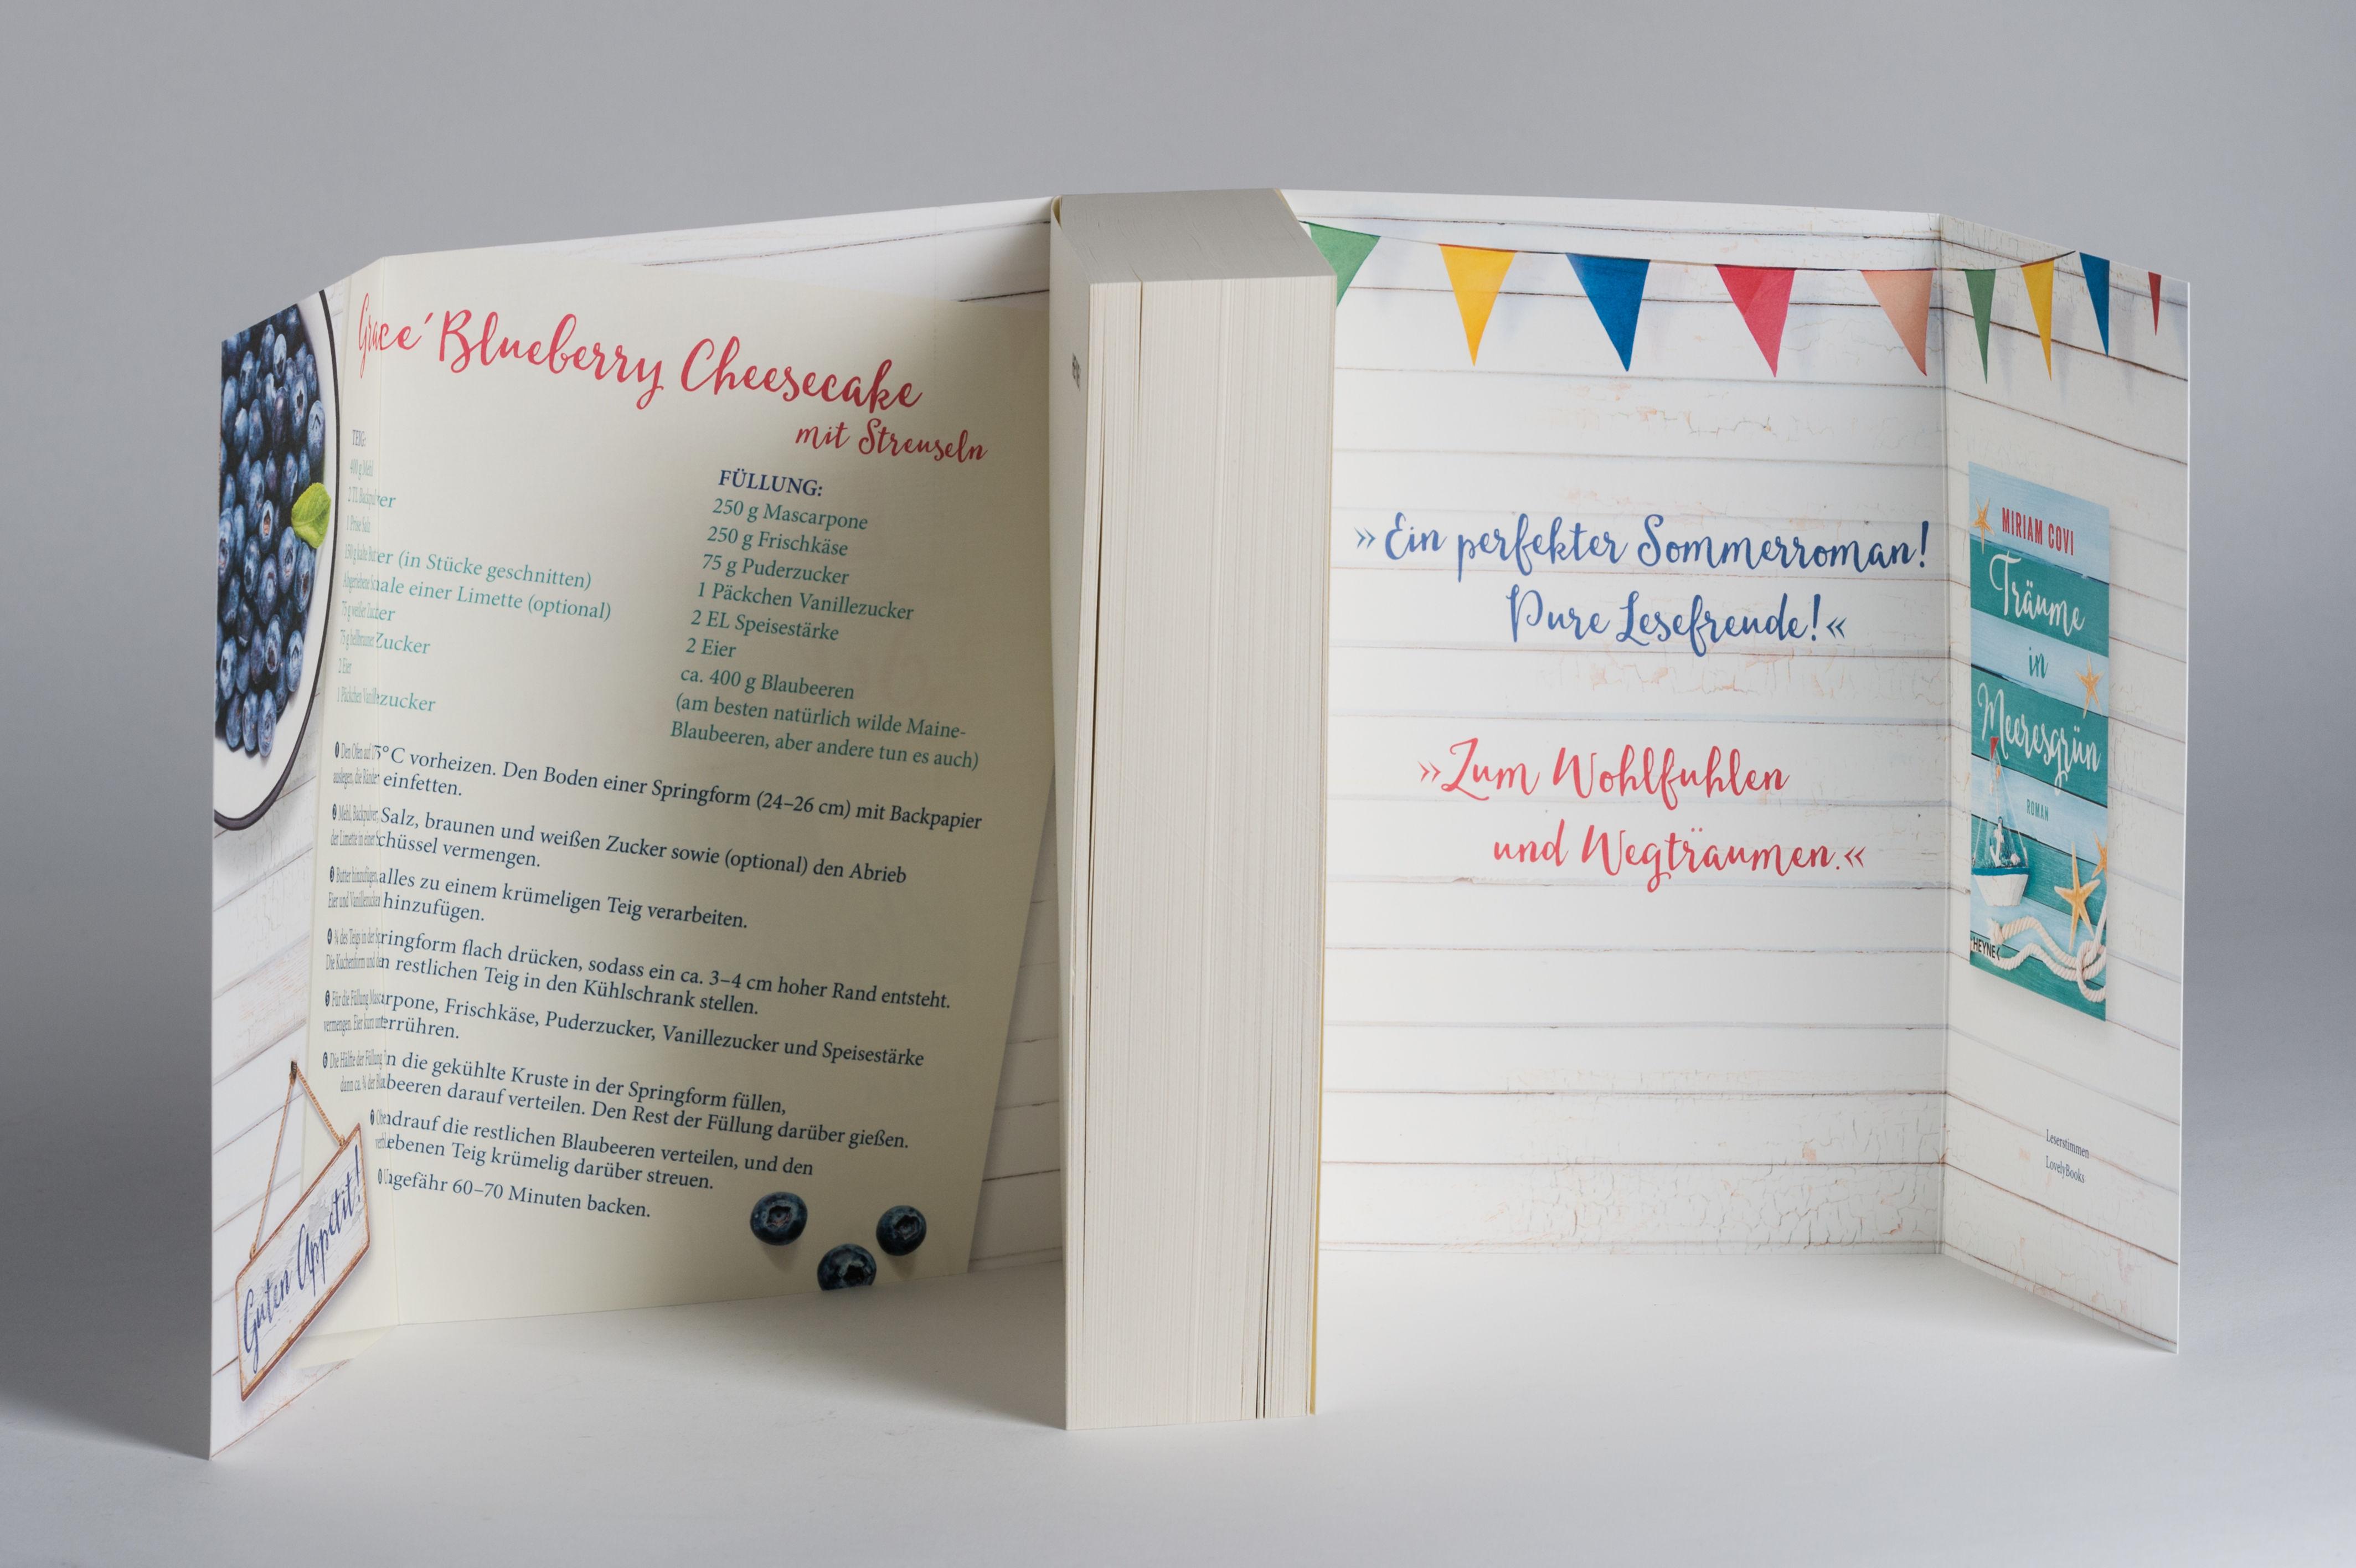 Grace´ Blueberry Cheesecake
mit Streuseln
TEIG:
400 g Mehl
2 TL Backpulver
1 Prise Salz
150 g kalte Butter (in Stücke geschnitten)
Abgeriebene Schale einer Limette (optional)
75 g weißer Zucker
75 g hellbrauner Zucker
2 Eier
1 Päckchen Vanillezucker
FÜLLUNG:
250 g Mascarpone
250 g Frischkäse
75 g Puderzucker
1 Päckchen Vanillezucker
2 EL Speisestärke
2 Eier
ca. 400 g Blaubeeren
(am besten natürlich wilde Maine-
Blaubeeren, aber andere tun es auch)
1 Den Ofen auf 175° C vorheizen. Den Boden einer Springform (24–26 cm) mit Backpapier
auslegen, die Ränder einfetten.
2 Mehl, Backpulver, Salz, braunen und weißen Zucker sowie (optional) den Abrieb
der Limette in einer Schüssel vermengen.
3 Butter hinzufügen, alles zu einem krümeligen Teig verarbeiten.
Eier und Vanillezucker hinzufügen.
4 ¾ des Teigs in der Springform flach drücken, sodass ein ca. 3–4 cm hoher Rand entsteht.
Die Kuchenform und den restlichen Teig in den Kühlschrank stellen.
5 Für die Füllung Mascarpone, Frischkäse, Puderzucker, Vanillezucker und Speisestärke
vermengen. Eier kurz unterrühren.
6 Die Hälfte der Füllung in die gekühlte Kruste in der Springform füllen,
dann ca. ¾ der Blaubeeren darauf verteilen. Den Rest der Füllung darüber gießen.
7 Obendrauf die restlichen Blaubeeren verteilen, und den
verbliebenen Teig krümelig darüber streuen.
8 Ungefähr 60–70 Minuten backen.
Guten Appetit!
»Ein perfekter Sommerroman!
Pure Lesefreude!«
»Zum Wohlfühlen
und Wegträumen.«
MIRIAM COVI
Träume
in
Meeresgrün
ROMAN
HEYNE<
Leserstimmen
LovelyBooks